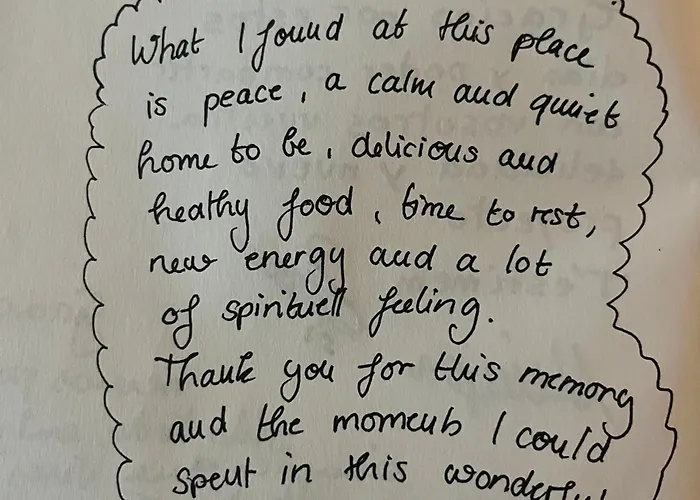 What I found at this place
is peace, a calm and quiet
home to be, delicious and
heathy food, time to rest,
new energy and a lot
of spirituell feeling.
Thank you for this memory
and the moment I could
spent in this wonderful